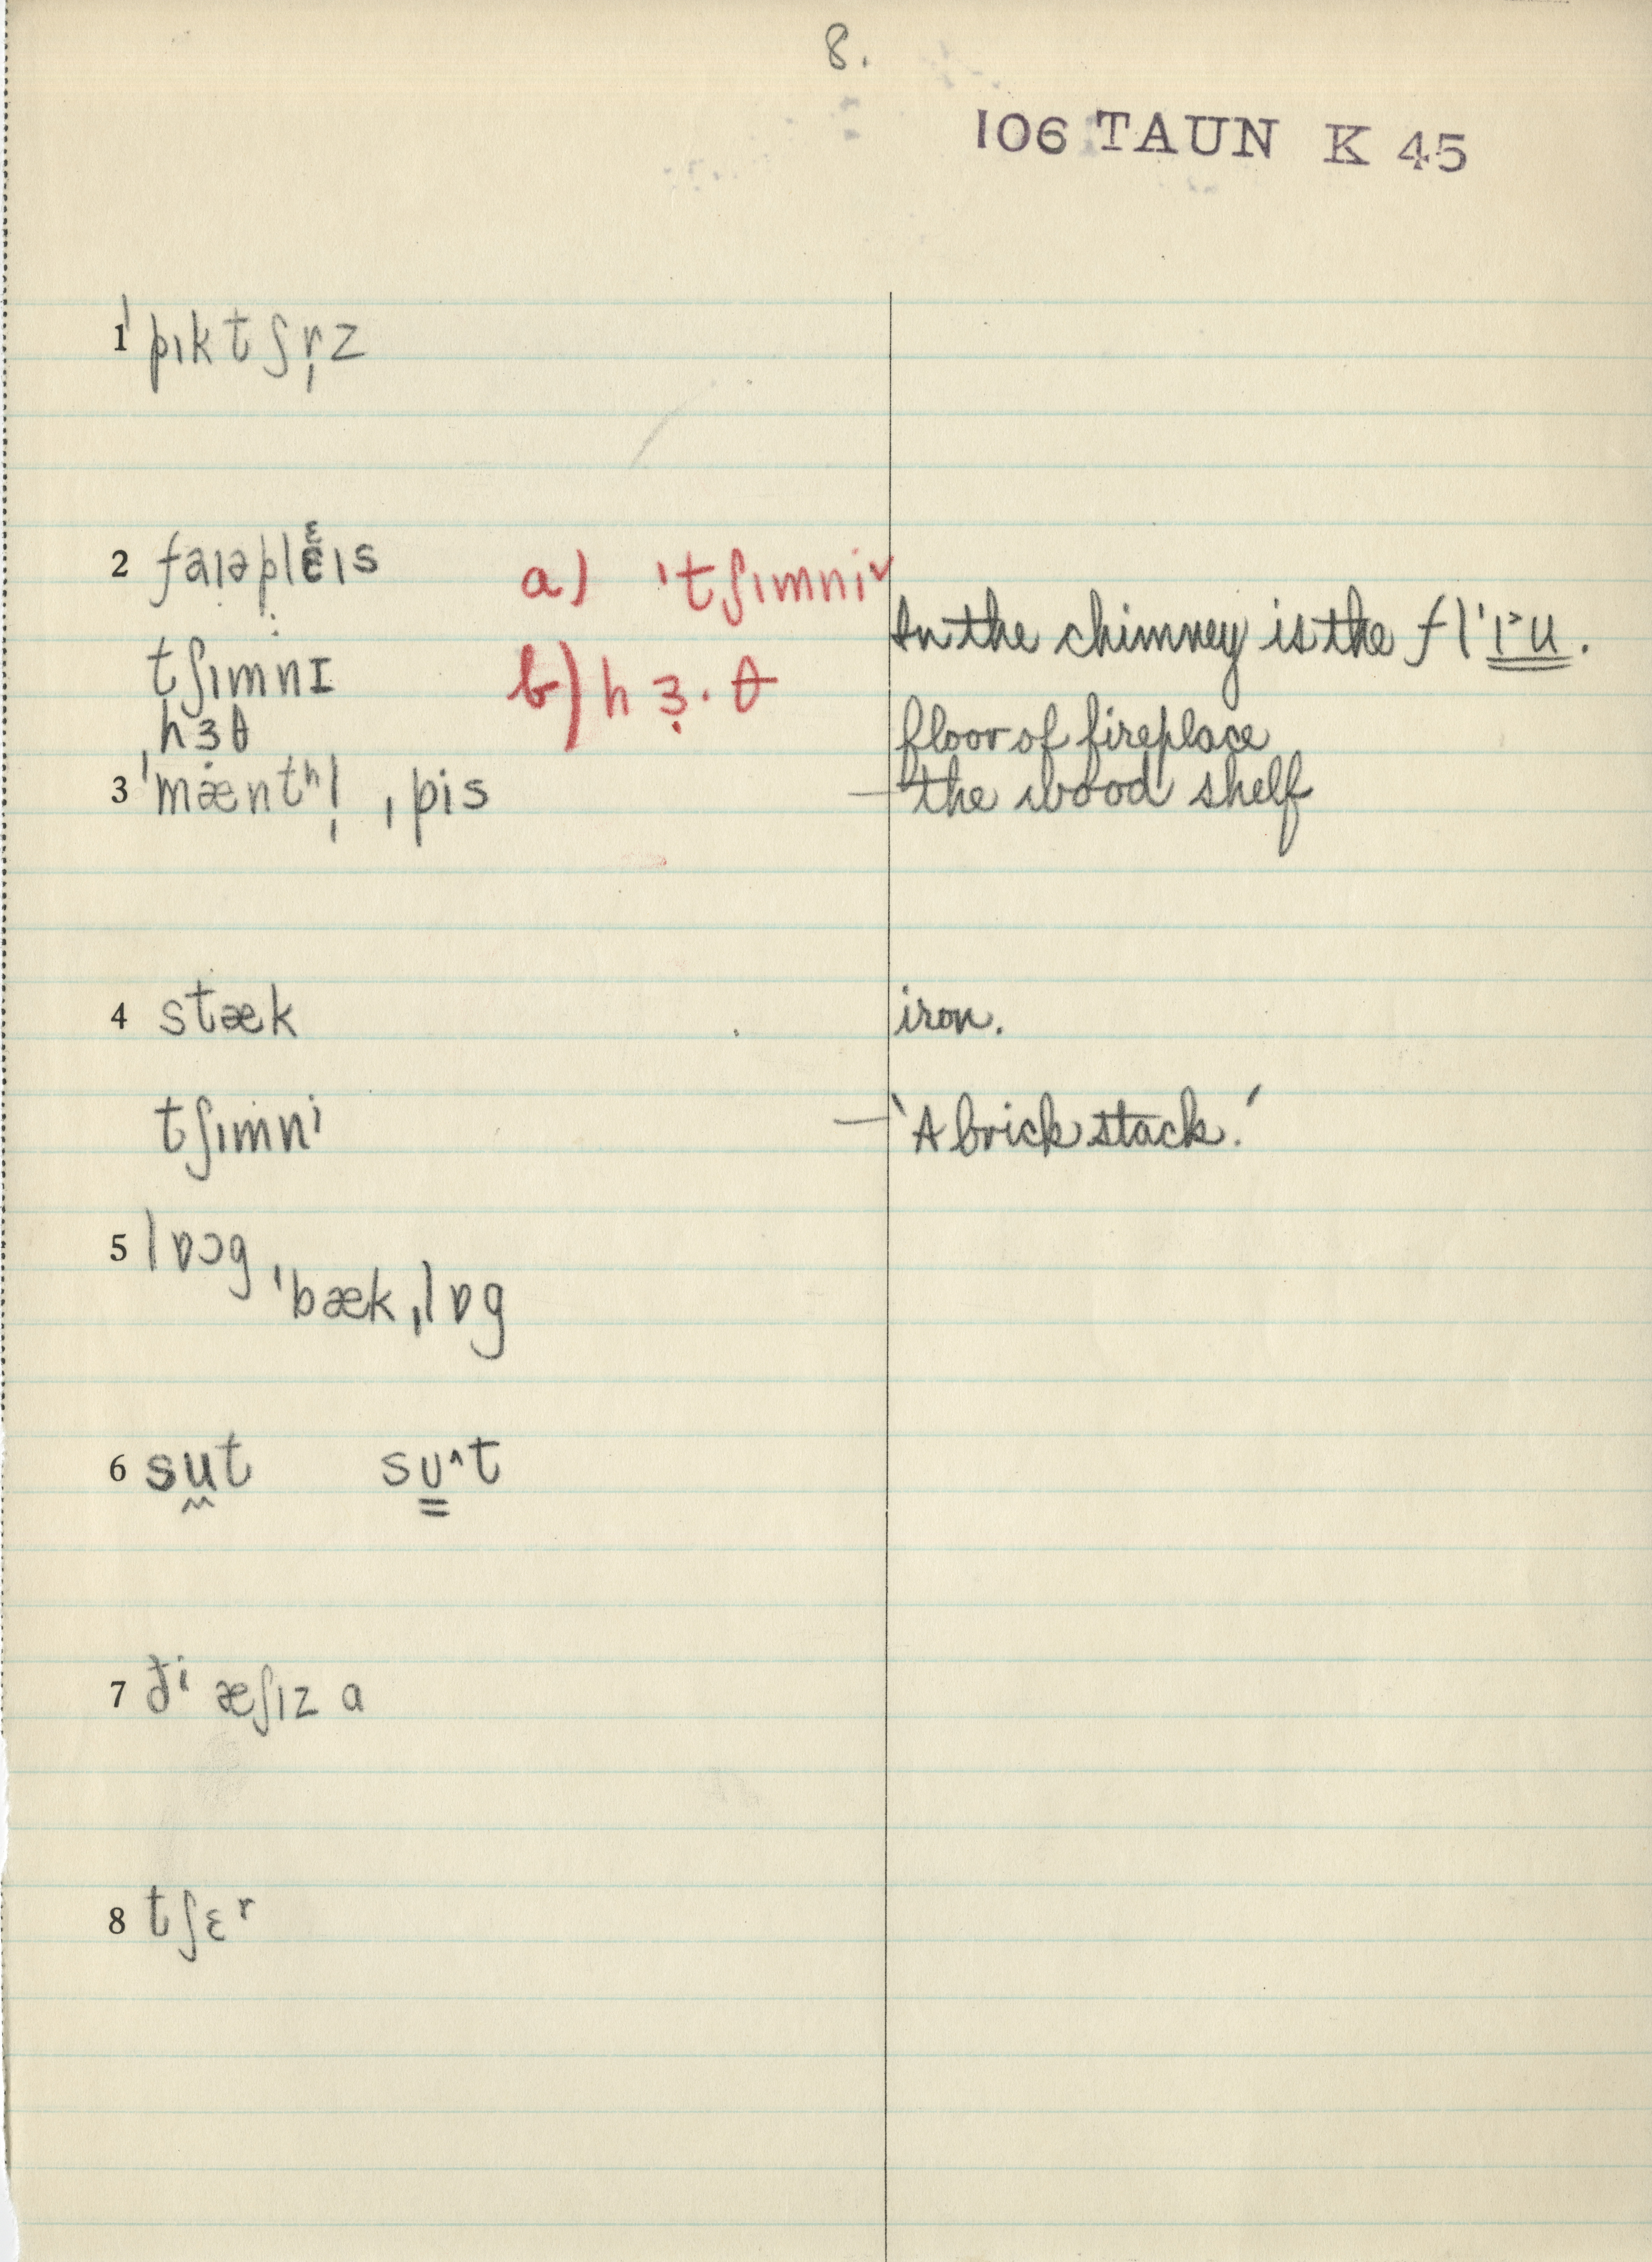 8.
106 TAUN K 45
1 ˈpɪktʃr̩z
2 faɪəplɛɪs a) ˈtʃɪmni˅
In the chimney is the
tʃɪmnɪ b) hɜ̣·θ
hɜ̣θ floor of fireplace
3 ˈmæntʰl̩ ˌpis — the wood shelf
4 stæk iron.
tʃɪmnⁱ — 'A brick stack.'
5 lɒɔg, ˈbækˌlɒg
6 sut sʊ^t
7 ðⁱ æʃɪz a
8 tʃɛʳ